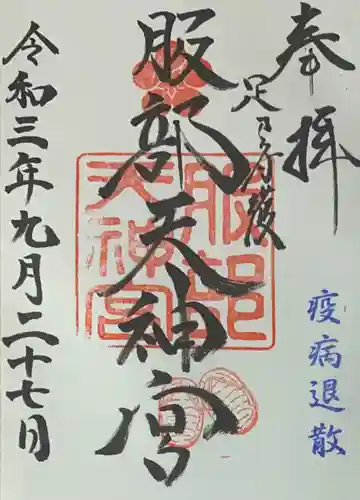 奉拝
足の守護
疫病退散
服部天神宮
服部
天神宮
令和三年九月二十七日